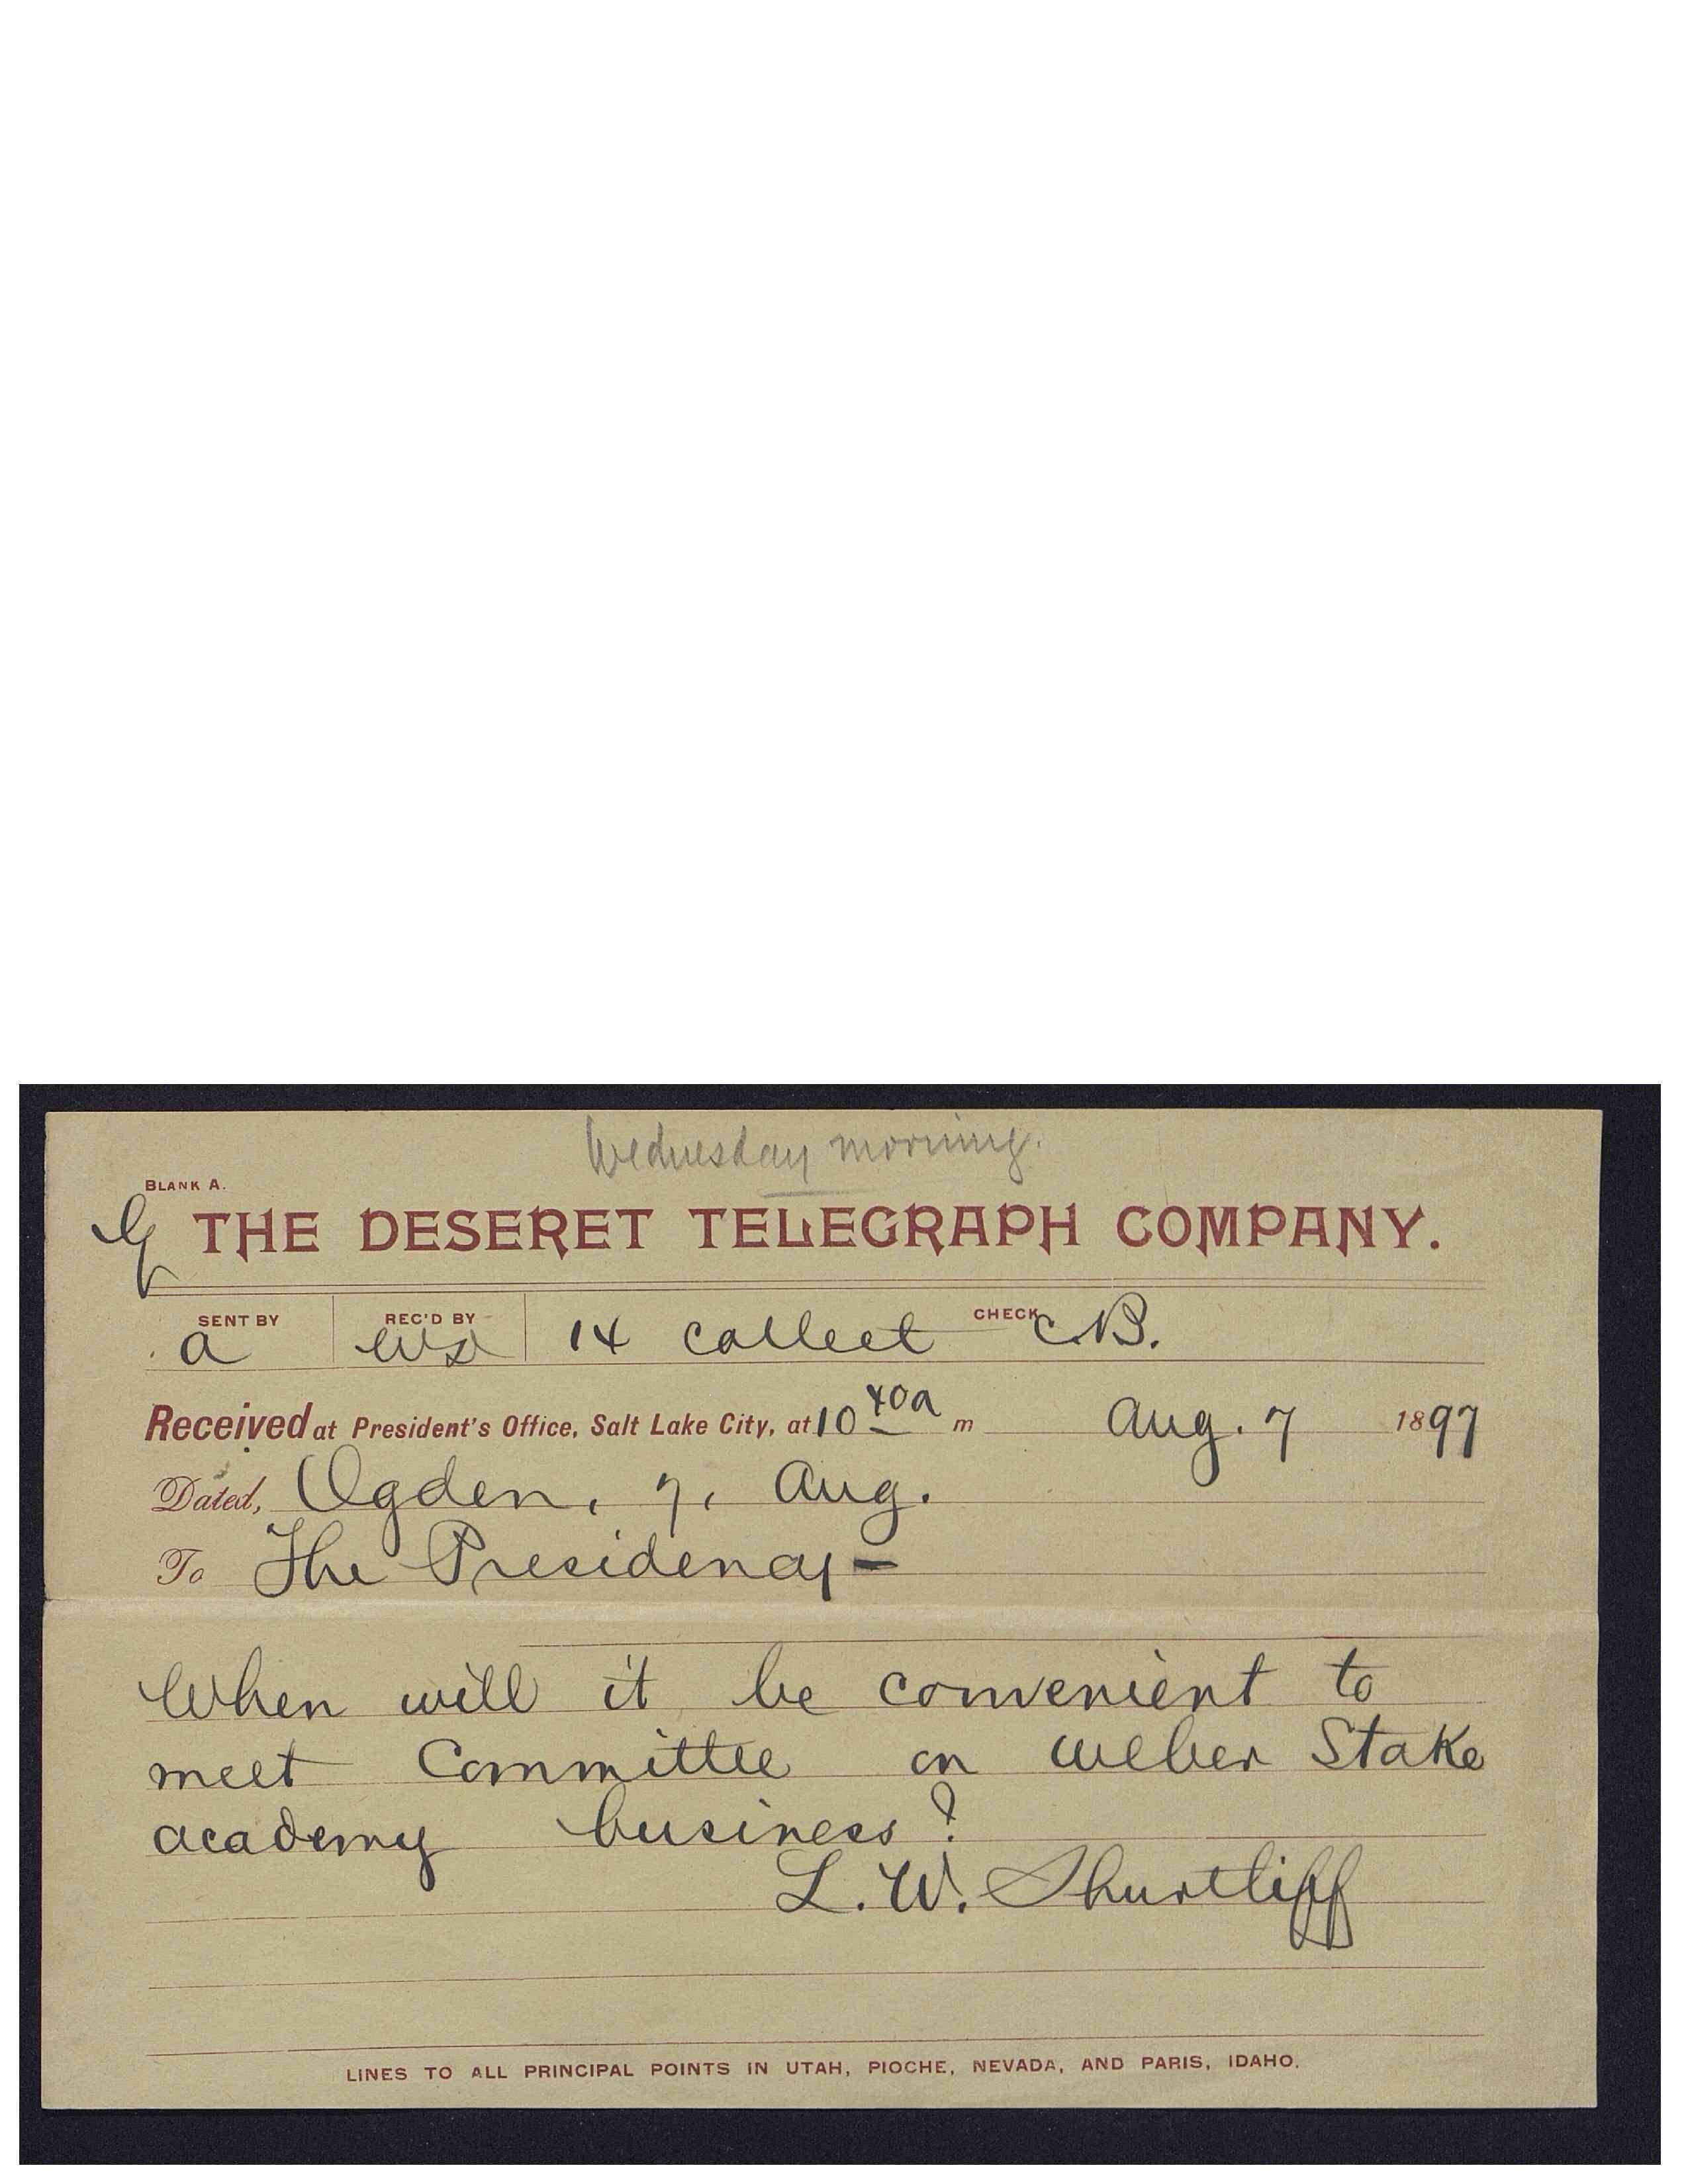 Wednesday morning.
BLANK A.
THE DESERET TELEGRAPH COMPANY.
SENT BY REC'D BY CHECK
a 14 Collect B.
Received at President's Office, Salt Lake City, at 10 40a m Aug. 7 1897
Dated, Ogden, 7, Aug.
To The Presidency-
When will it be convenient to
meet Committee on Weber Stake
academy business?
L. W. Shurtliff
LINES TO ALL PRINCIPAL POINTS IN UTAH, PIOCHE, NEVADA, AND PARIS, IDAHO.